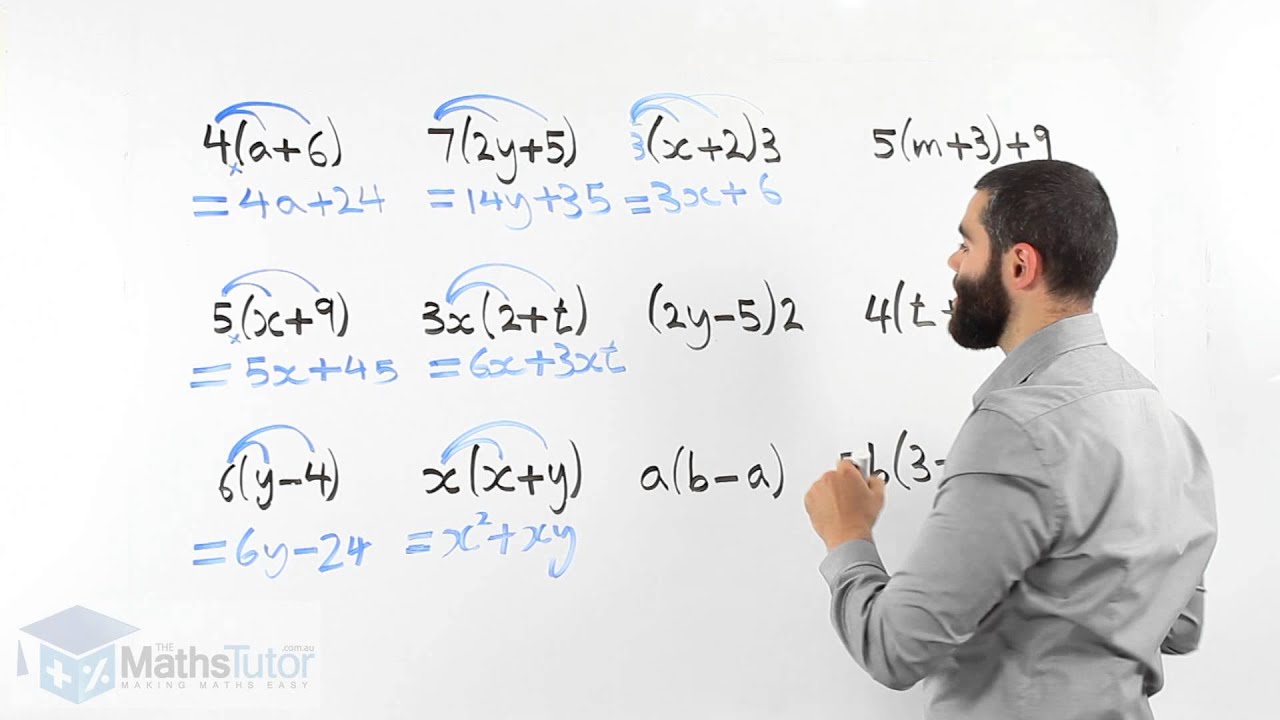 4(a+6) 7(2y+5) 3(x+2)3 5(m+3)+9
=4a+24 =14y+35 =3x+6
5(x+9) 3x(2+t) (2y-5)2 4(t
=5x+45 =6x+3xt
6(y-4) x(x+y) a(b-a) b(3-
=6y-24 =x²+xy
THE
MathsTutor .com.au
MAKING MATHS EASY